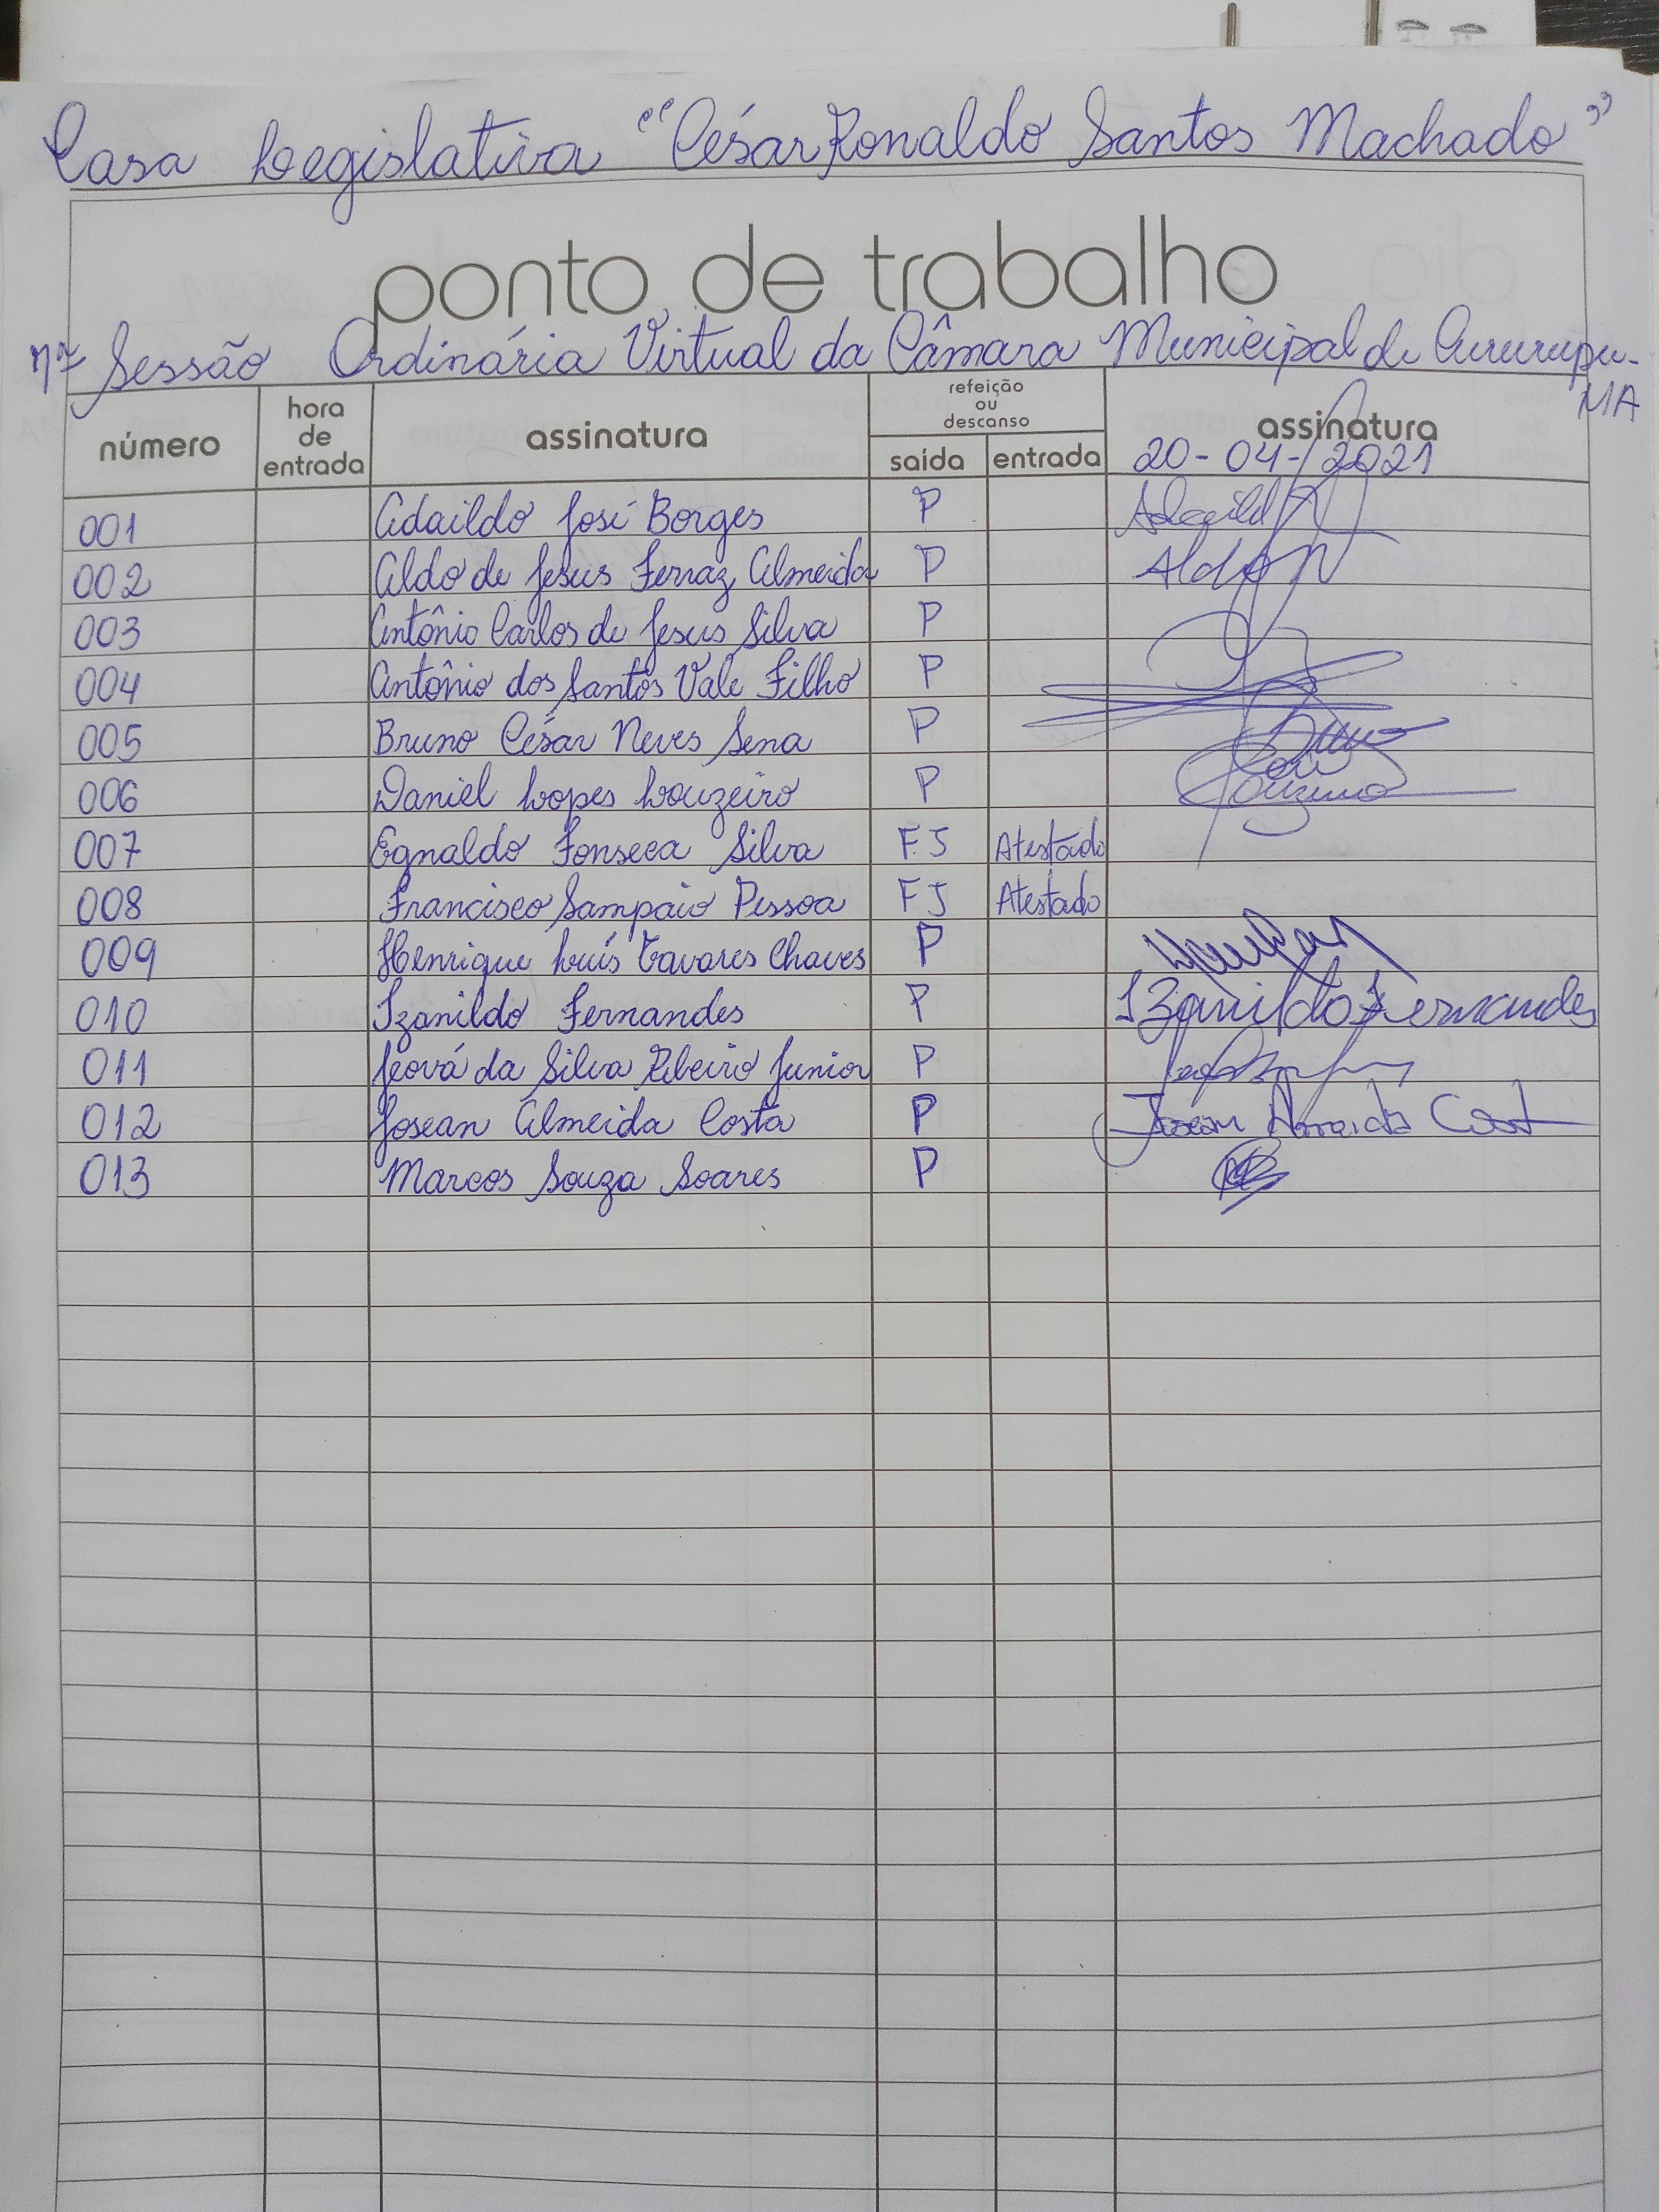 Casa Legislativa "César Ronaldo Santos Machado"
ponto de trabalho
Sessão Ordinária Virtual da Câmara Municipal de Cururupu-
MA
número hora de entrada assinatura refeição ou descanso saída entrada assinatura
20-04-2021
001 Adaildo José Borges P
002 Aldo de Jesus Ferraz Almeida P Aldo
003 Antônio Carlos de Jesus Silva P
004 Antônio dos Santos Vale Filho P
005 Bruno César Neves Sena P Bruno
006 Daniel Lopes Louzeiro P
007 Egnaldo Fonseca Silva FJ Atestado
008 Francisco Sampaio Pessoa FJ Atestado
009 Henrique Luís Tavares Chaves P
010 Izanildo Fernandes P Izanildo Fernandes
011 Jeová da Silva Ribeiro Junior P
012 Josean Almeida Costa P Josean Almeida Cost
013 Marcos Souza Soares P